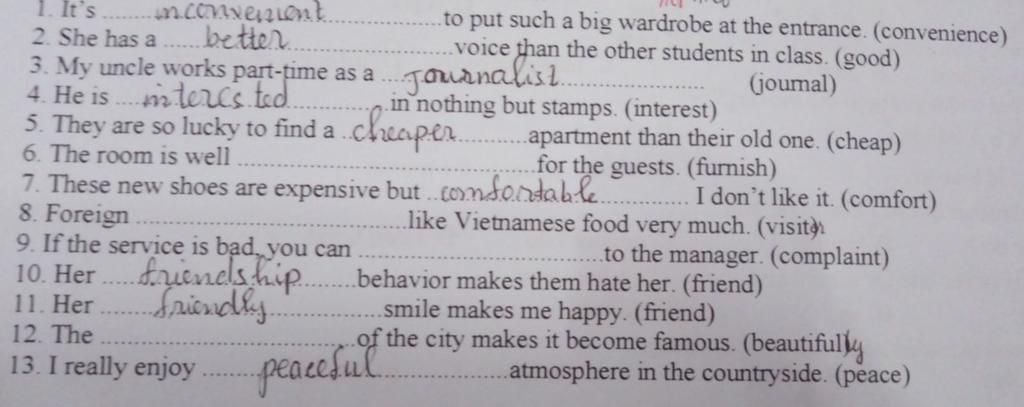 1. It's ........inconvenient....................to put such a big wardrobe at the entrance. (convenience)
2. She has a ......better............................voice than the other students in class. (good)
3. My uncle works part-time as a ...Journalist......................... (journal)
4. He is ....interested...................in nothing but stamps. (interest)
5. They are so lucky to find a ..cheaper............apartment than their old one. (cheap)
6. The room is well ......................................................for the guests. (furnish)
7. These new shoes are expensive but ..comfortable................ I don't like it. (comfort)
8. Foreign .................................................like Vietnamese food very much. (visit)
9. If the service is bad, you can ............................................to the manager. (complaint)
10. Her ......friendship.........behavior makes them hate her. (friend)
11. Her .........friendly...................smile makes me happy. (friend)
12. The ..............................................of the city makes it become famous. (beautifully
13. I really enjoy ..........peaceful.......................atmosphere in the countryside. (peace)